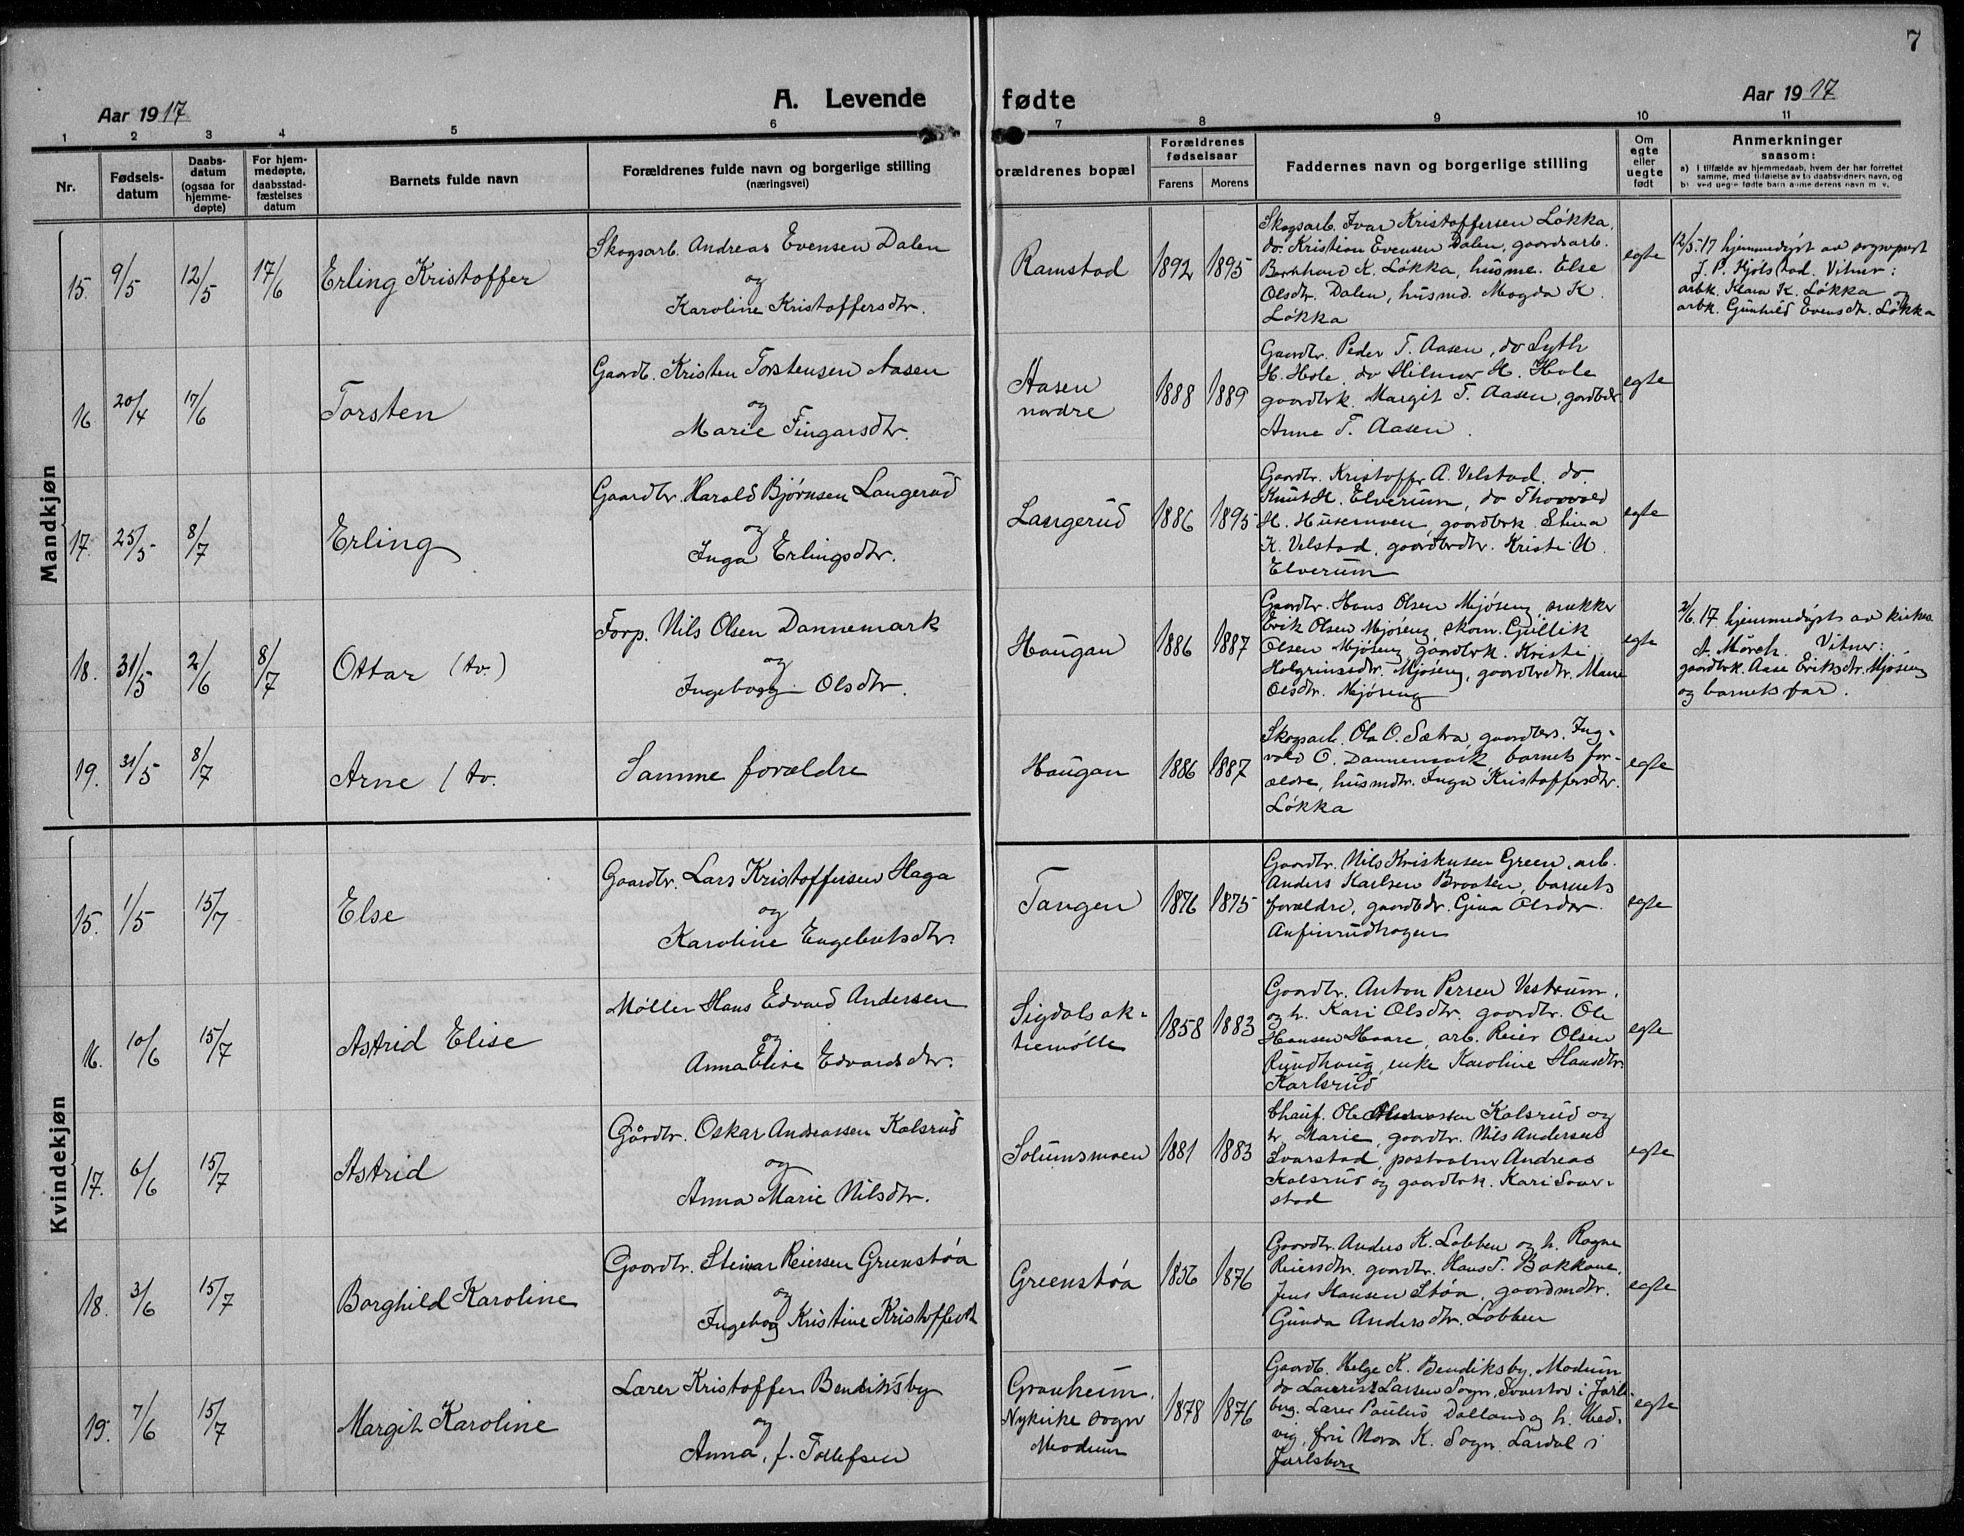 7
Aar 1917
A. Levende fødte
Aar 1917
1 2 3 4 5 6 7 8 9 10 11
Nr.
Fødsels-
datum
Daabs-
datum
(ogsaa for
hjemme-
døpte)
For hjem-
medøpte,
daabsstad-
fæstelses
datum
Barnets fulde navn
Forældrenes fulde navn og borgerlige stilling
(næringsvei)
orældrenes bopæl
Forældrenes
fødselsaar
Farens Morens
Faddernes navn og borgerlige stilling
Om
egte
eller
uegte
født
Anmerkninger
saasom:
a) I tilfælde av hjemmedaab, hvem der har forrettet
samme, med tilføielse av to daabsvidners navn, og
b) ved uegte fødte barn alme derens navn m. v.
Mandkjøn
15. 9/5 12/5 17/6 Erling Kristoffer
Skogsarb. Andreas Evensen Dalen
og
Karoline Kristoffersdtr.
Ramstad 1892 1895
Skogsarb. Ivar Kristoffersen Løkka,
do. Kristian Evensen Dalen, gaardsarb.
Bernhard K. Løkka, husm. Else
Olsdtr. Dalen, husmd. Magda K.
Løkka
egte
12/5 17 hjemmedøpt av sogneprest
J. P. Kjølstad. Vitner:
arbk. Klara K. Løkka og
arbk. Gunhild Evensdtr. Løkka
16 20/4 17/6 Torsten
Gaardb. Kristen Torstensen Aasen
og
Marie Fingarsdtr.
Aasen
nordre
1888 1889
Gaardbr. Peder T. Aasen, do Syth
H. Hole, do Hilmar H. Hole
gaardbrk. Margit T. Aasen, gardbdr.
Anne T. Aasen.
egte
17. 25/5 8/7 Erling
Gaardbr. Harald Bjørnsen Langerud
og
Inga Erlingsdtr.
Langerud 1886 1895
Gaardbr. Kristoffer A. Velstad. do.
Knut H. Elverum, do Thorvald
H. Husemoen, gaardbrk. Stina
K. Velstad, gaardbrdtr. Kristi U.
Elverum
egte
18. 31/5 2/6 8/7 Ottar (tv.)
Forp. Nils Olsen Dannemark
og
Ingeborg Olsdtr.
Haugan 1886 1887
Gaardbr. Hans Olsen Mjøseng, snekker
Erik Olsen Mjøseng, skom. Gullik
Olsen Mjøseng gaardbrk. Kristi
Holgrimsdtr. Mjøseng, gaardbrdtr. Marie
Olsdtr. Mjøseng
egte
2/6 17 hjemmedøpt av kirkes.
A. Mørch. Vitner:
gaardbrk. Aase Eriksdtr. Mjøseng
og barnets far.
19. 31/5 8/7 Arne (tv.
Samme forældre
Haugan 1886 1887
Skogsarb. Ola O. Sætra, gaardbrs. Ing-
vald O. Dannemark, barnets for-
ældre, husmdtr. Inga Kristoffersdtr.
Løkka
egte
Kvindekjøn
15. 1/5 15/7 Else
Gaardbr. Lars Kristoffersen Haga
og
Karoline Engebretsdtr.
Tangen 1876 1875
Gaardbr. Nils Kristensen Green, arb.
Anders Karlsen Braaten, barnets
forældre, gaardbdr. Gina Olsdtr.
Anfinrudhagen
egte
16. 10/6 15/7 Astrid Elise
Møller Hans Edvard Andersen
og
Anna Elise Edvardsdtr.
Sigdals ak-
tiemølle
1858 1883
Gaardbr. Anton Persen Vestrum,
og h. Kari Olsdtr. gaardbr. Ole
Hansen Haare, arb. Reier Olsen
Rundhaug, enke Karoline Hansdtr.
Karlsrud
egte
17. 6/6 15/7 Astrid
Gårdbr. Oskar Andreassen Kolsrud
og
Anna Marie Nilsdtr.
Solumsmoen 1881 1883
Chauf. Ole Kolsrud og
h. Marie, gaardbr. Nils Andersen
Svarstad, postaabner Andreas
Kolsrud og gaardbrk. Kari Svar-
stad
egte
18. 3/6 15/7 Borghild Karoline
Gaardbr. Steinar Reiersen Grenstøa
og
Ingeborg Kristine Kristoffersdt
Greenstøa 1856 1876
Gaardbr. Anders K. Lobben og h. Ragne
Reiersdtr. gaardbr. Hans T. Bakkane,
Jens Hansen Støa, gaardmdtr.
Gunda Andersdtr. Lobben
egte
19. 7/6 15/7 Margit Karoline
Lærer Kristoffer Bendiksby
og
Anna, f. Tollefsen
Granheim,
Nykirke sogn
Modum
1878 1876
Gaardb. Helge K. Bendiksby, Modum
do Laurits Larsen Sogn, Svarstad i Jarls-
berg. Lærer Paulus Dalland og h. Hed-
vig, fru Nora K. Sogn. Lardal i
Jarlsberg
egte